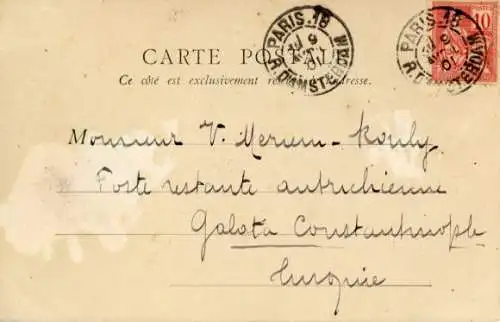 CARTE POSTALE
Ce côté est exclusivement réservé à l'adresse.
PARIS 18
R. D'AMSTERDAM
PARIS 18
R. D'AMSTERDAM
10
Monsieur V. Merium-Kouly
Poste restante autrichienne
Galata Constantinople
Turquie